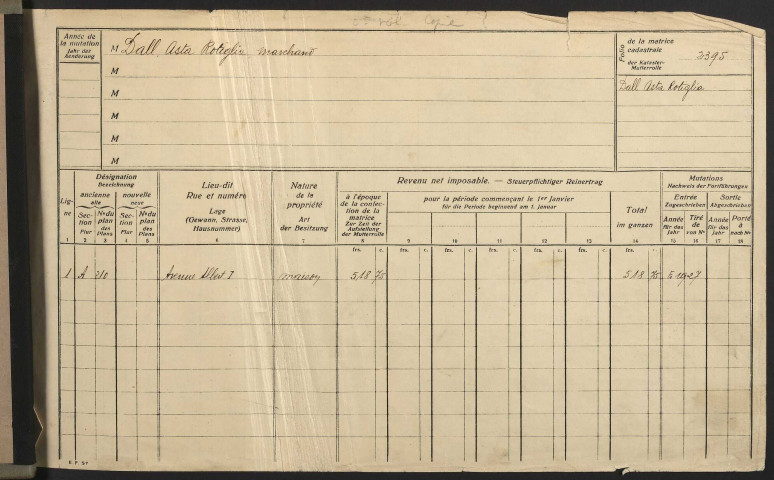 2e vol. Copie
Année de la mutation
Jahr der Aenderung
M Dall Asta Roteglia marchand
M
M
M
M
M
Folio de la matrice cadastrale
der Kataster-Mutterrolle
3395
Dall Asta Roteglia
Ligne
Désignation
Bezeichnung
ancienne
alte
nouvelle
neue
Section
Flur
No du plan
des Plans
Section
Flur
No du plan
des Plans
Lieu-dit
Rue et numéro
Lage
(Gewann, Strasse, Hausnummer)
Nature de la propriété
Art der Besitzung
Revenu net imposable. — Steuerpflichtiger Reinertrag
à l'époque de la confection de la matrice
Zur Zeit der Aufstellung der Mutterrolle
pour la période commençant le 1er Janvier
für die Periode beginnend am 1. Januar
Total
im ganzen
Mutations
Nachweis der Fortführungen
Entrée
Zugeschrieben
Sortie
Abgeschrieben
Année
für das Jahr
Tiré de
von No
Année
für das Jahr
Porté à
nach No
1 2 3 4 5 6 7 8 9 10 11 12 13 14 15 16 17 18
frs. c. frs. c. frs. c. frs. c. frs. c. frs. c. frs. c.
1 A 210 Avenue Albert I maison 518 75 518 75 5 1927